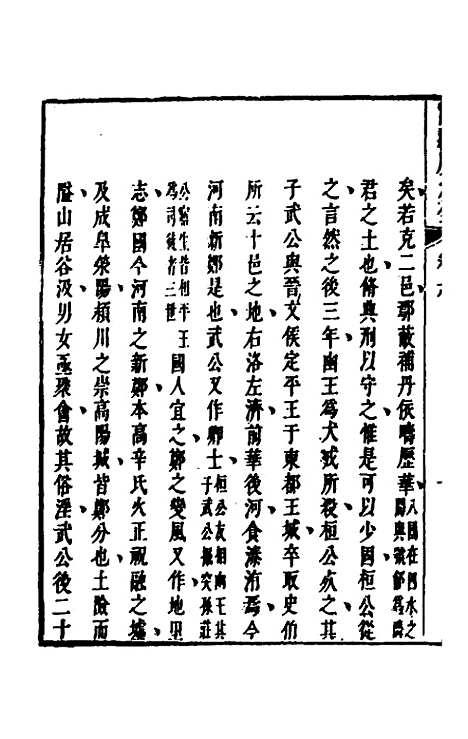 矣若克二邑鄢蔽補丹依疇歷華八國在四水之間與虢鄶爲十
君之土也脩典刑以守之惟是可以少固桓公從
之言然之後三年幽王爲犬戎所殺桓公死之其
子武公與晉文侯定平王于東都王城卒取史伯
所云十邑之地右洛左濟前華後河食溱洧焉今
河南新鄭是也武公又作卿士桓公友相幽王其子武公掘突孫莊
公寤生皆相平王爲司徒者三世國人宜之鄭之變風又作地里
志鄭國今河南之新鄭本高辛氏火正祝融之墟
及成皋滎陽潁川之崇高陽城皆鄭分也土陿而
險山居谷汲男女亟聚會故其俗淫武公後二十